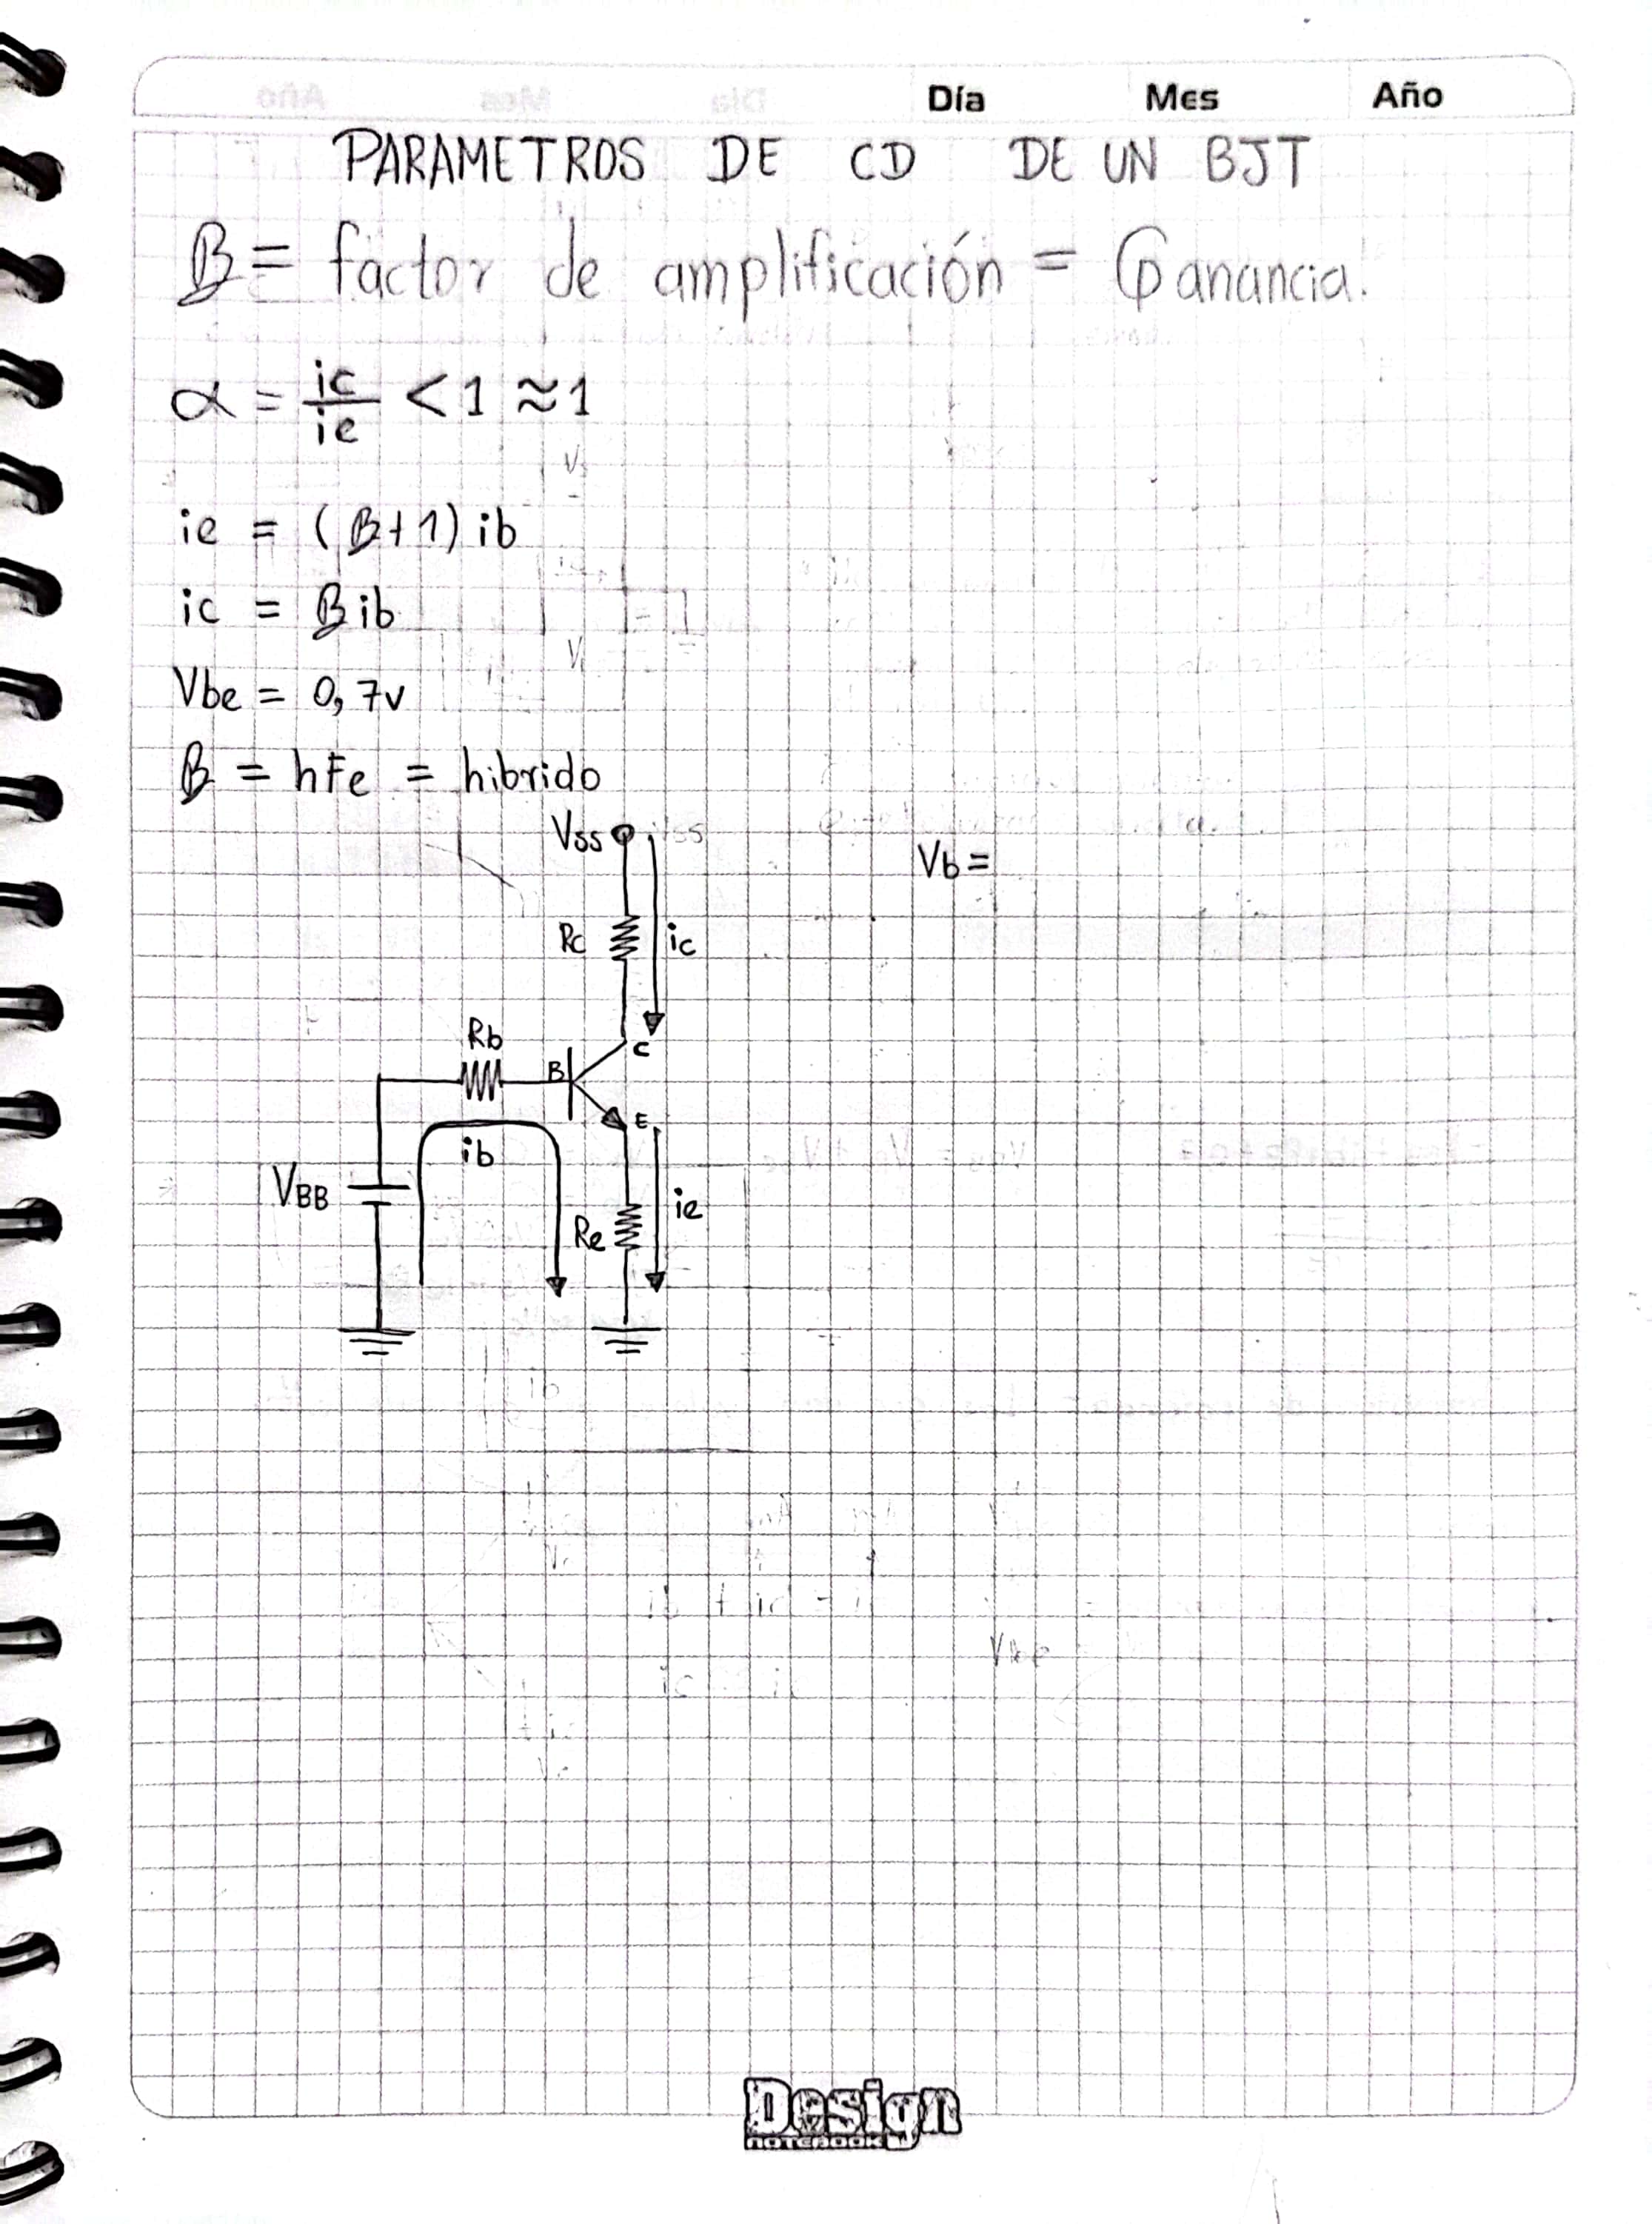 Día Mes Año
PARAMETROS DE CD DE UN BJT
β = factor de amplificación = Ganancia.
α = ic/ie < 1 ≈ 1
ie = (β+1) ib
ic = β ib
Vbe = 0,7v
β = hFe = hibrido
Vss
Vb =
Rc ic
Rb
C
B
E
ib
VBB
ie
Re
Design
NOTEBOOK